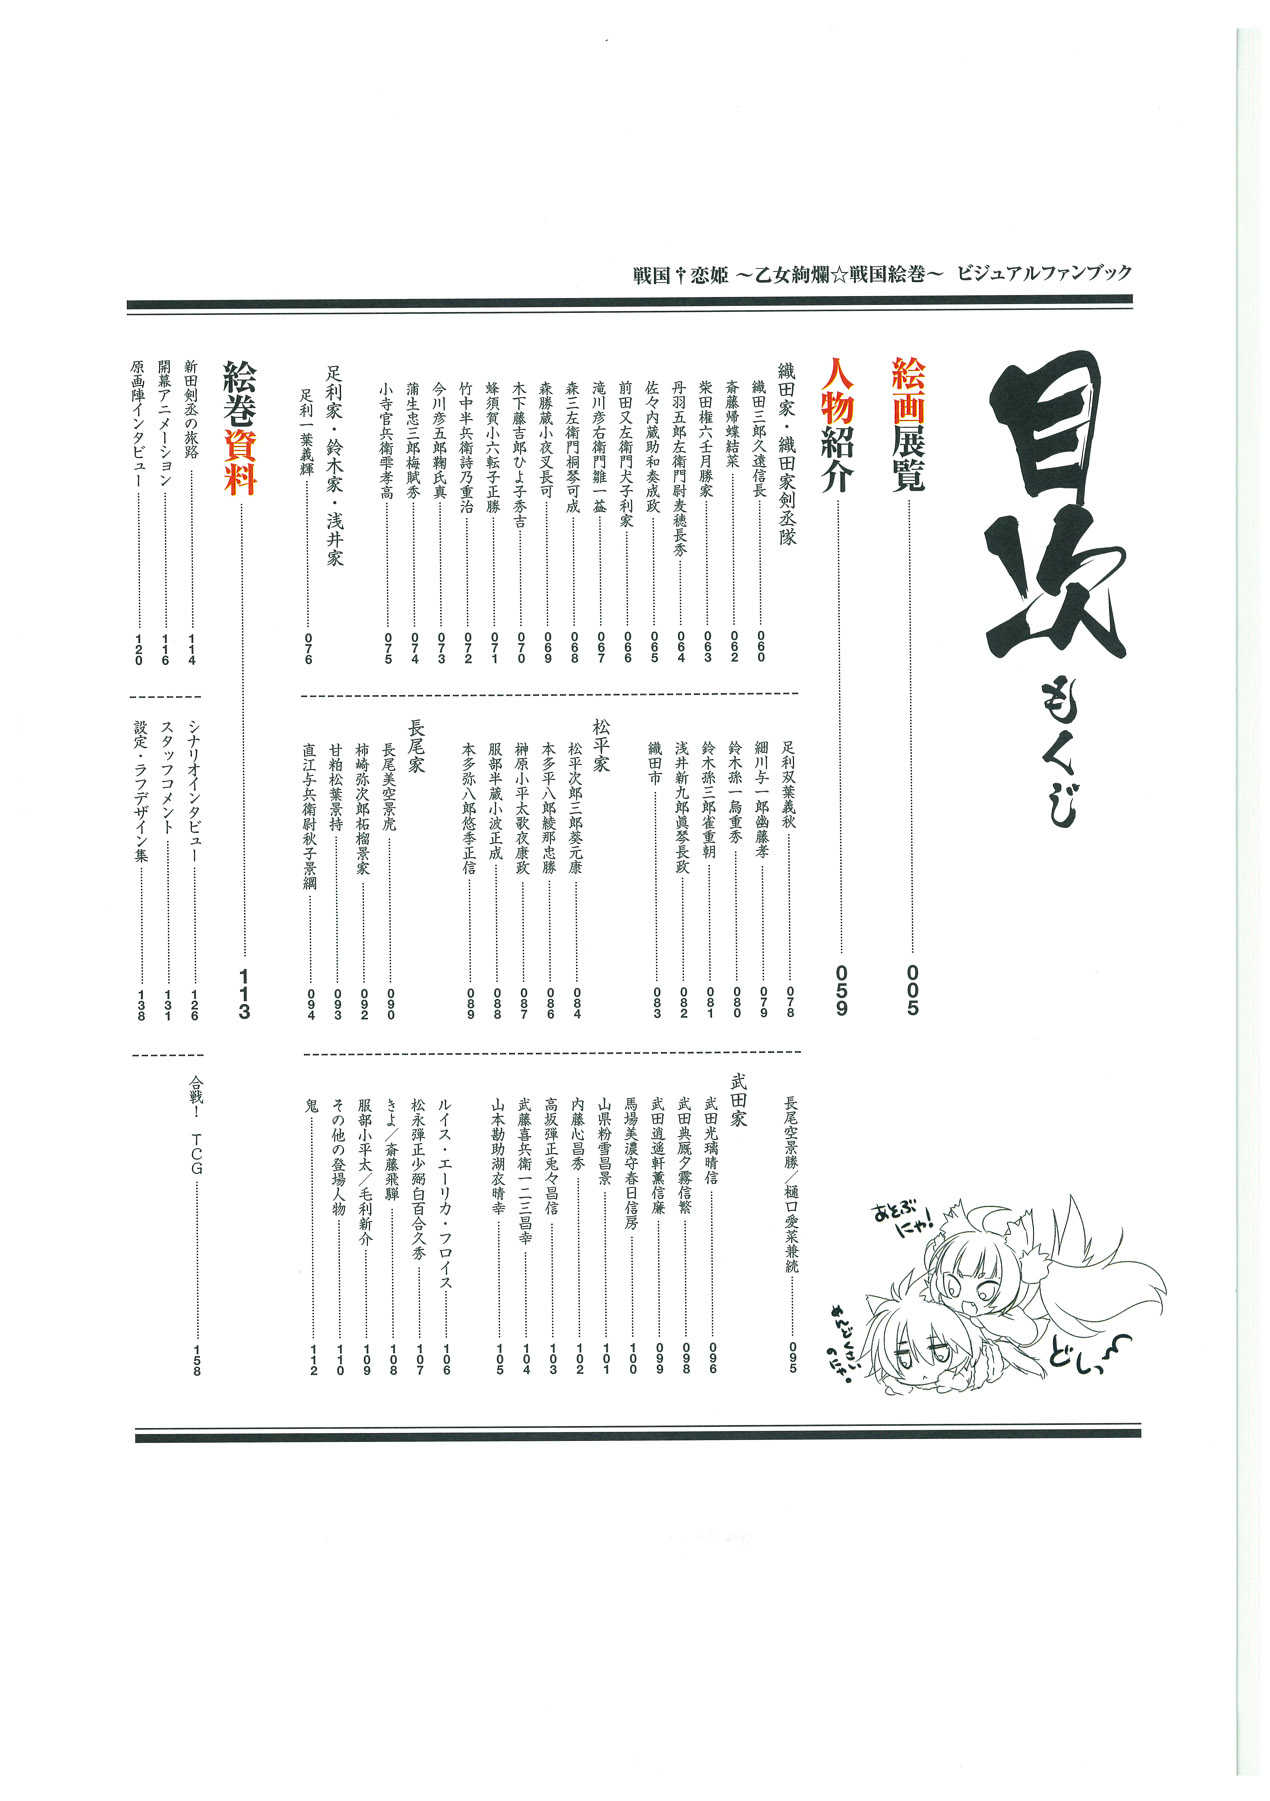 戦国†恋姫 ～乙女絢爛☆戦国絵巻～ ビジュアルファンブック
目次 もくじ
絵画展覧 005
人物紹介 059
織田家・織田家剣丞隊
織田三郎久遠信長 060
斎藤帰蝶結菜 062
柴田権六壬月勝家 063
丹羽五郎左衛門尉麦穂長秀 064
佐々内蔵助和奏成政 065
前田又左衛門犬子利家 066
滝川彦右衛門雛一益 067
森三左衛門桐琴可成 068
森勝蔵小夜叉長可 069
木下藤吉郎ひよ子秀吉 070
蜂須賀小六転子正勝 071
竹中半兵衛詩乃重治 072
今川彦五郎鞠氏真 073
蒲生忠三郎梅賦秀 074
小寺官兵衛雫孝高 075
足利家・鈴木家・浅井家
足利一葉義輝 076
足利双葉義秋 078
細川与一郎幽藤孝 079
鈴木孫一烏重秀 080
鈴木孫三郎雀重朝 081
浅井新九郎眞琴長政 082
織田市 083
松平家
松平次郎三郎葵元康 084
本多平八郎綾那忠勝 086
榊原小平太歌夜康政 087
服部半蔵小波正成 088
本多弥八郎悠季正信 089
長尾家
長尾美空景虎 090
柿崎弥次郎柘榴景家 092
甘粕松葉景持 093
直江与兵衛尉秋子景綱 094
長尾空景勝／樋口愛菜兼続 095
武田家
武田光璃晴信 096
武田典厩夕霧信繁 098
武田逍遥軒薫信廉 099
馬場美濃守春日信房 100
山県粉雪昌景 101
内藤心昌秀 102
高坂弾正兎々昌信 103
武藤喜兵衛一二三昌幸 104
山本勘助湖衣晴幸 105
ルイス・エーリカ・フロイス 106
松永弾正少弼白百合久秀 107
きよ／斎藤飛騨 108
服部小平太／毛利新介 109
その他の登場人物 110
鬼 112
絵巻資料 113
新田剣丞の旅路 114
開幕アニメーション 116
原画陣インタビュー 120
シナリオインタビュー 126
スタッフコメント 131
設定・ラフデザイン集 138
合戦！ TCG 158
あそぶ
にゃ！
めんどくさい
のにゃ。
どしっ